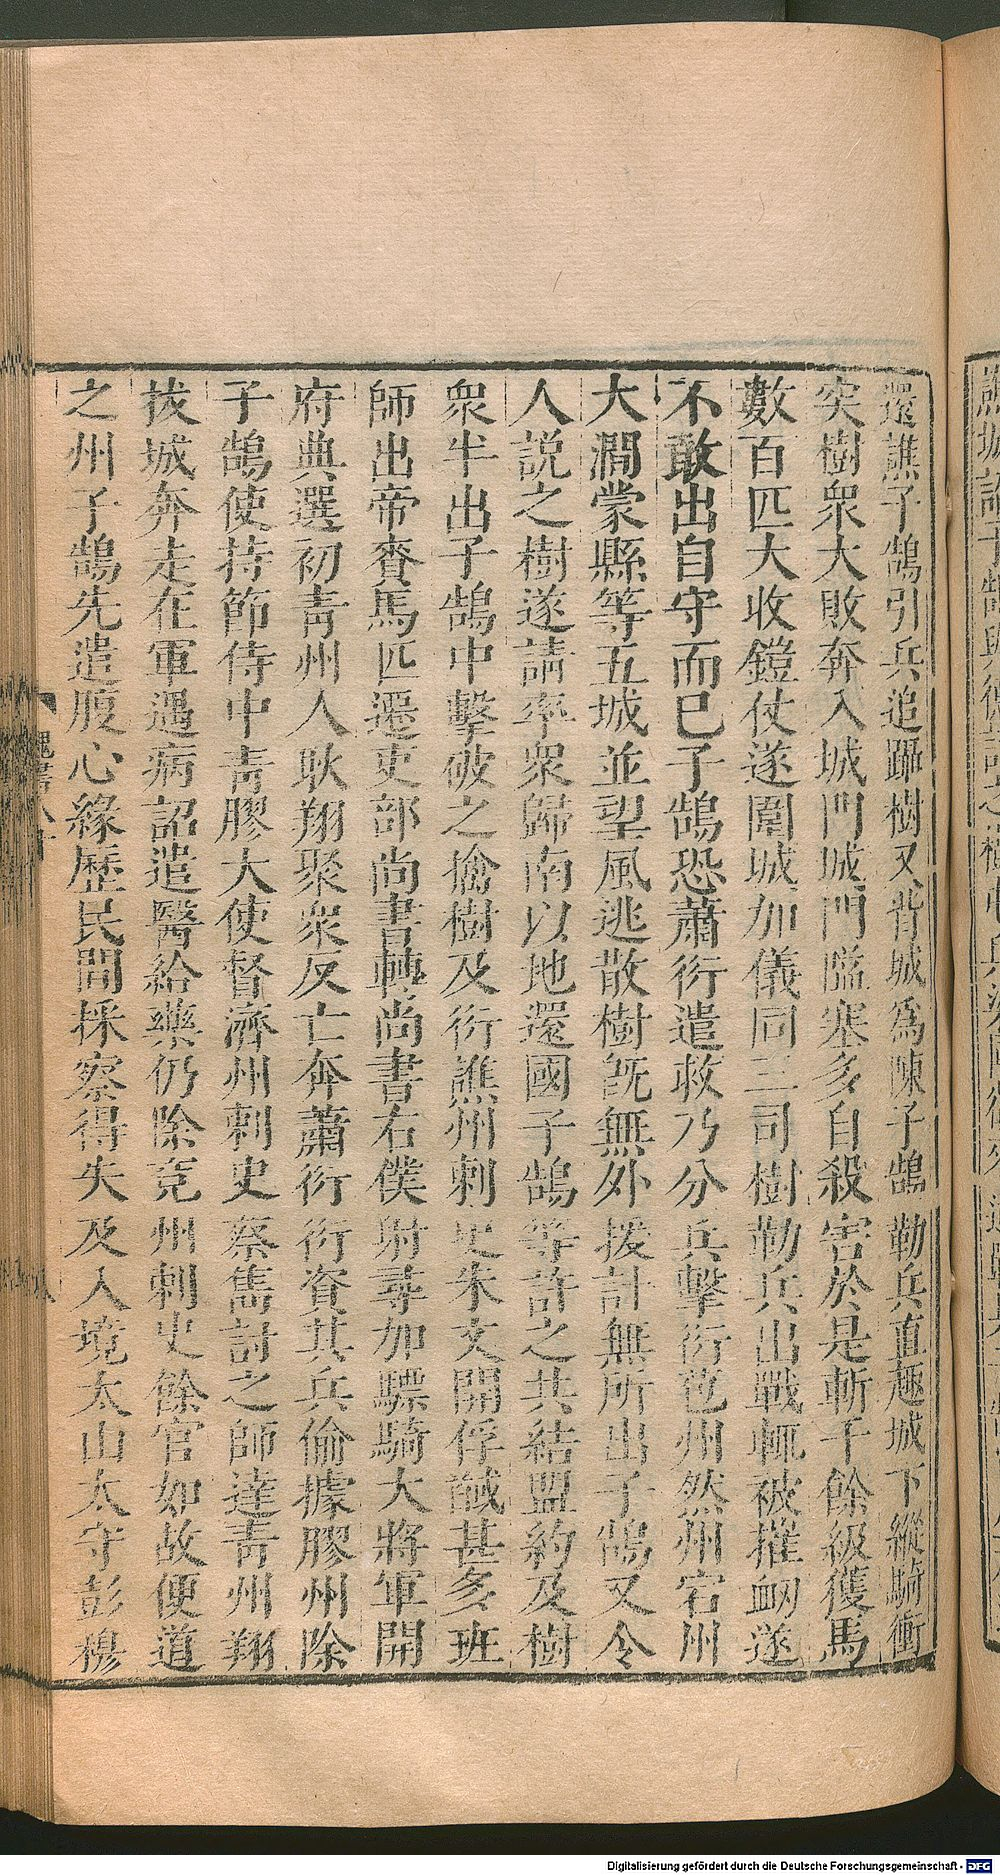 還譙子鵠引兵追躡樹又背城為陳子鵠勒兵直趣城下縱騎衝
突樹衆大敗奔入城門城門隘塞多自殺害於是斬千餘級獲馬
數百匹大收鎧仗遂圍城加儀同三司樹勒兵出戰輒被摧衂遂
不敢出自守而已子鵠恐蕭衍遣救乃分兵擊衍苞州然州宕州
大澗蒙縣等五城並望風逃散樹旣無外援計無所出子鵠又令
人說之樹遂請率衆歸南以地還國子鵠等許之共結盟約及樹
衆半出子鵠中擊破之擒樹及衍譙州刺史朱文開俘馘甚多班
師出帝賚馬匹遷吏部尚書轉尚書右僕射尋加驃騎大將軍開
府典選初青州人耿翔聚衆反亡奔蕭衍衍資其兵偷據膠州除
子鵠使持節侍中青膠大使督濟州刺史蔡雋討之師達青州翔
拔城奔走在軍遇病詔遣醫給藥仍除兗州刺史餘官如故便道
之州子鵠先遣腹心緣歷民間採察得失及入境太山太守彭穆
魏書八十
Digitalisierung gefördert durch die Deutsche Forschungsgemeinschaft - DFG